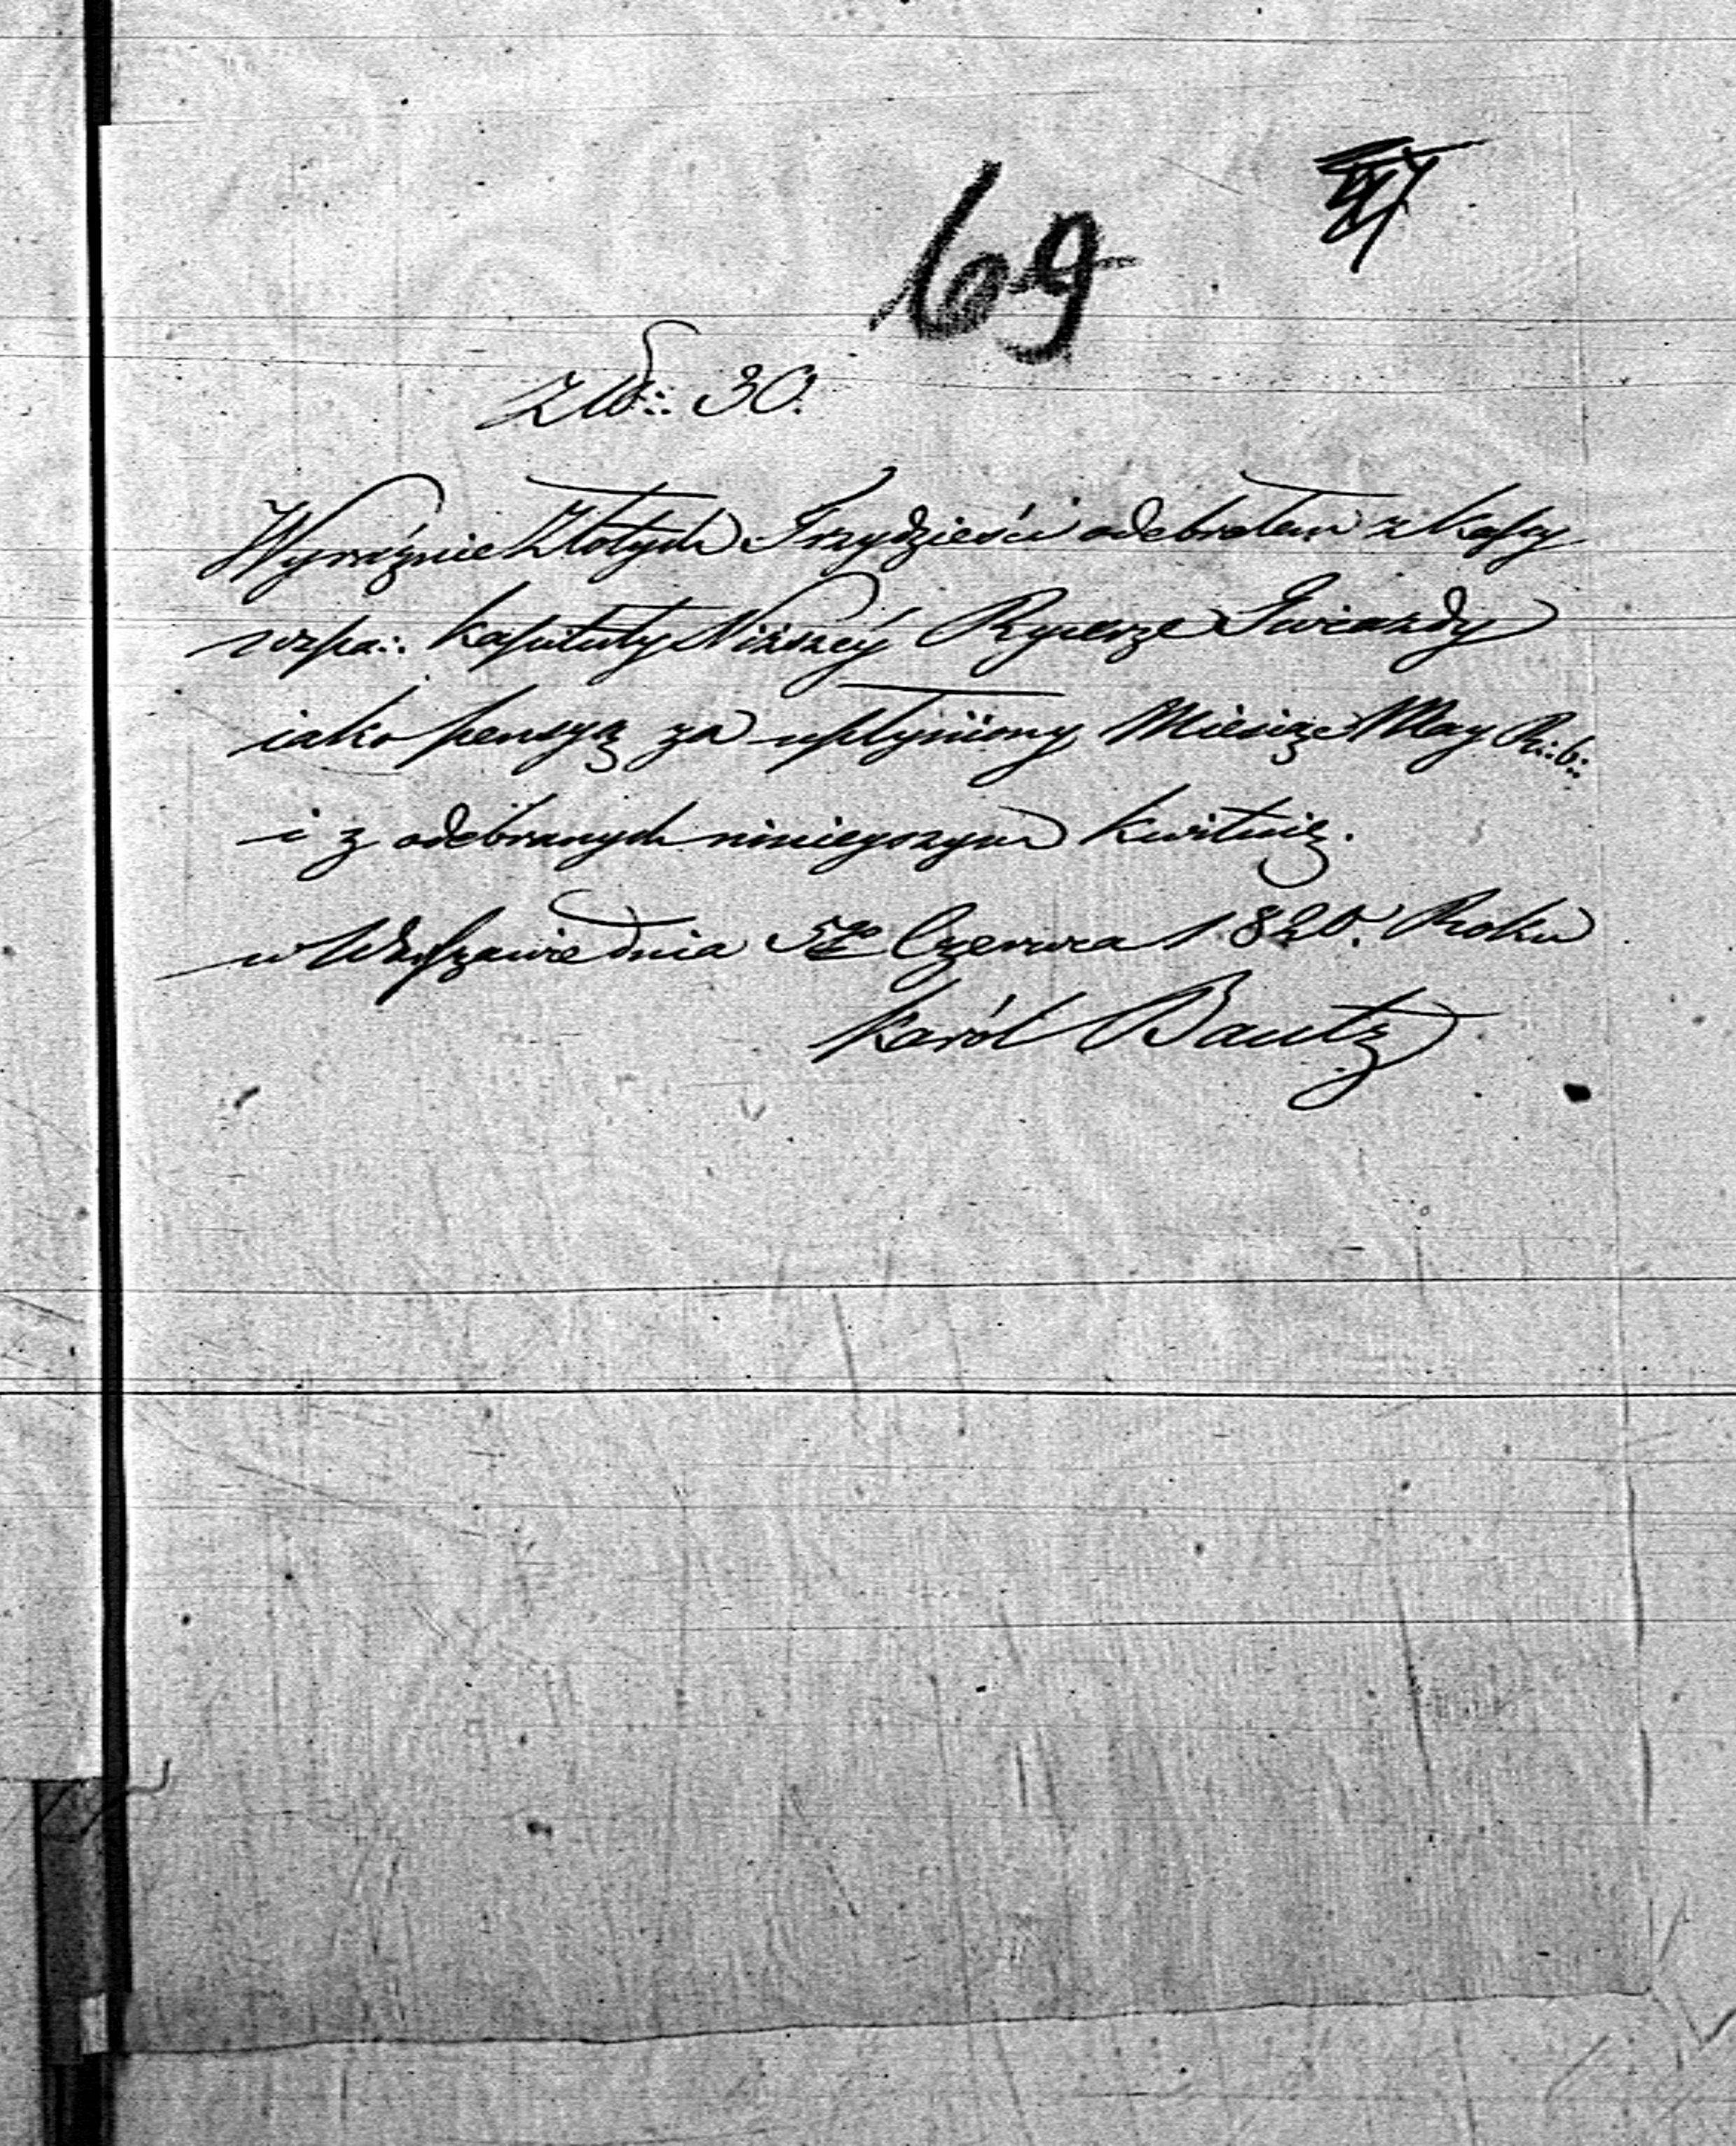 69
Zł: 30.
Wyraźnie Złotych Trzydzieści odebrałem z kassy
wspa: Kapituły Niższey Rycerze Gwiazdy
iako pensyą za upłyniony Miesiąc May R: b:
i z odebranych ninieyszym kwituię.
w Warszawie dnia 5go Czerwca 1820. Roku
Karól Bautz